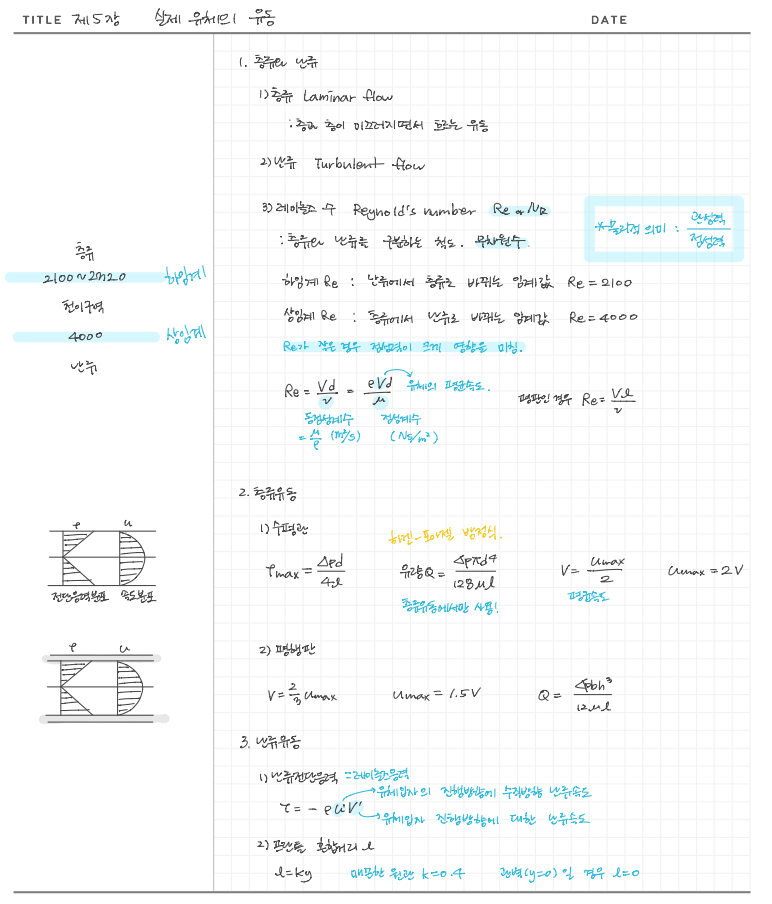 TITLE 제5장 실제 유체의 유동 DATE
1. 층류와 난류
1) 층류 Laminar flow
: 층과 층이 미끄러지면서 흐르는 유동
2) 난류 Turbulent flow
3) 레이놀즈 수 Reynold's number Re or NR
: 층류와 난류를 구분하는 척도. 무차원수.
*물리적 의미 : 관성력/점성력
층류
2100~2320 하임계
천이구역
4000 상임계
난류
하임계 Re : 난류에서 층류로 바뀌는 임계값 Re = 2100
상임계 Re : 층류에서 난류로 바뀌는 임계값 Re = 4000
Re가 작은 경우 점성력이 크게 영향을 미침.
Re = Vd/ν = ρVd/μ 유체의 평균속도.
평판인 경우 Re = Vl/ν
동점성계수 점성계수
= μ/ρ (m²/s) (Ns/m²)
2. 층류유동
1) 수평관
하겐-포아젤 방정식.
τmax = Δpd/4l 유량 Q = Δpπd⁴/128μl V = umax/2 umax = 2V
층류유동에서만 사용! 평균속도
τ u
전단응력분포 속도분포
2) 평행판
V = 2/3 umax umax = 1.5V Q = Δpbh³/12μl
τ u
3. 난류유동
1) 난류전단응력 = 레이놀즈응력
유체입자의 진행방향에 수직방향 난류속도
τ = - ρu'v'
유체입자 진행방향에 대한 난류속도
2) 프란틀 혼합거리 l
l = ky 매끈한 원관 k=0.4 관벽(y=0)일 경우 l=0